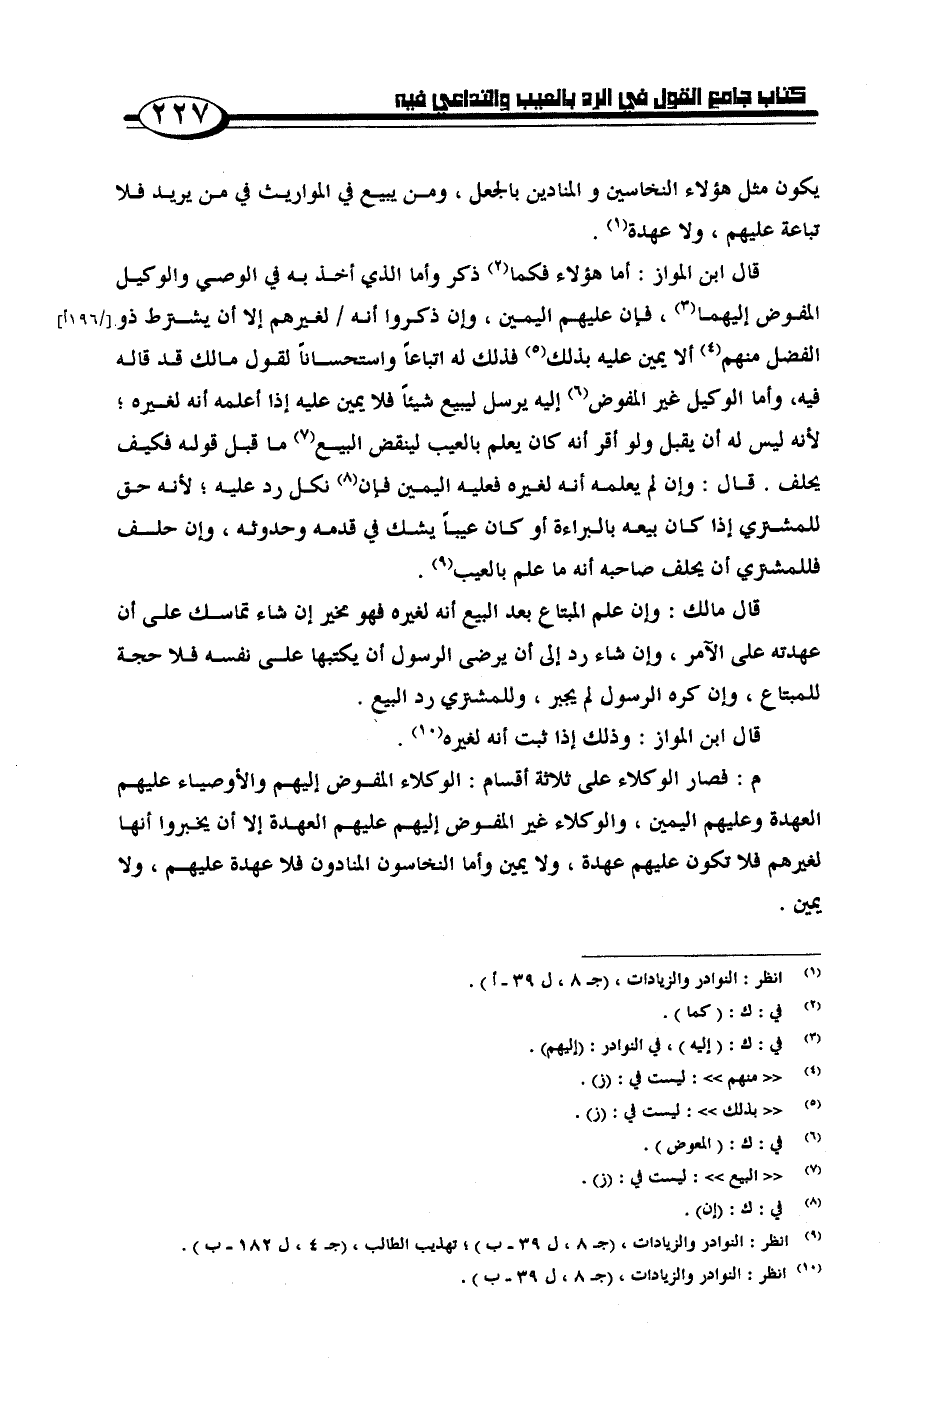 كتاب جامع القول في الرد بالعيب والتداعي فيه
٢٢٧
يكون مثل هؤلاء النخاسين و المنادين بالجعل ، ومن يبيع في المواريث في من يريد فلا
تباعة عليهم ، ولا عهدة(١) .
قال ابن المواز : أما هؤلاء فكما(٢) ذكر وأما الذي أخذ به في الوصي والوكيل
المفوض إليهما(٣) ، فإن عليهم اليمين ، وإن ذكروا أنه / لغيرهم إلا أن يشترط ذو [/١٩٦أ]
الفضل منهم(٤) ألا يمين عليه بذلك(٥) فذلك له اتباعاً واستحساناً لقول مالك قد قاله
فيه، وأما الوكيل غير المفوض(٦) إليه يرسل ليبيع شيئاً فلا يمين عليه إذا أعلمه أنه لغيره ؛
لأنه ليس له أن يقبل ولو أقر أنه كان يعلم بالعيب لينقض البيع(٧) ما قبل قوله فكيف
يحلف . قال : وإن لم يعلمه أنه لغيره فعليه اليمين فإن(٨) نكل رد عليه ؛ لأنه حق
للمشتري إذا كان بيعه بالبراءة أو كان عيباً يشك في قدمه وحدوثه ، وإن حلف
فللمشتري أن يحلف صاحبه أنه ما علم بالعيب(٩) .
قال مالك : وإن علم المبتاع بعد البيع أنه لغيره فهو مخير إن شاء تماسك على أن
عهدته على الآمر ، وإن شاء رد إلى أن يرضى الرسول أن يكتبها على نفسه فلا حجة
للمبتاع ، وإن كره الرسول لم يجبر ، وللمشتري رد البيع .
قال ابن المواز : وذلك إذا ثبت أنه لغيره(١٠) .
م : فصار الوكلاء على ثلاثة أقسام : الوكلاء المفوض إليهم والأوصياء عليهم
العهدة وعليهم اليمين ، والوكلاء غير المفوض إليهم عليهم العهدة إلا أن يخبروا أنها
لغيرهم فلا تكون عليهم عهدة ، ولا يمين وأما النخاسون المنادون فلا عهدة عليهم ، ولا
يمين .
(١) انظر : النوادر والزيادات ، (جـ ٨ ، ل ٣٩ - أ ) .
(٢) في : ك : ( كما ) .
(٣) في : ك : ( إليه ) ، في النوادر : (إليهم) .
(٤) << منهم >> : ليست في : (ز) .
(٥) << بذلك >> : ليست في : (ز) .
(٦) في : ك : ( المعوض ) .
(٧) << البيع >> : ليست في : (ز) .
(٨) في : ك : (إن) .
(٩) انظر : النوادر والزيادات ، (جـ ٨ ، ل ٣٩ - ب ) ؛ تهذيب الطالب ، (جـ ٤ ، ل ١٨٢ - ب ) .
(١٠) انظر : النوادر والزيادات ، (جـ ٨ ، ل ٣٩ - ب ) .